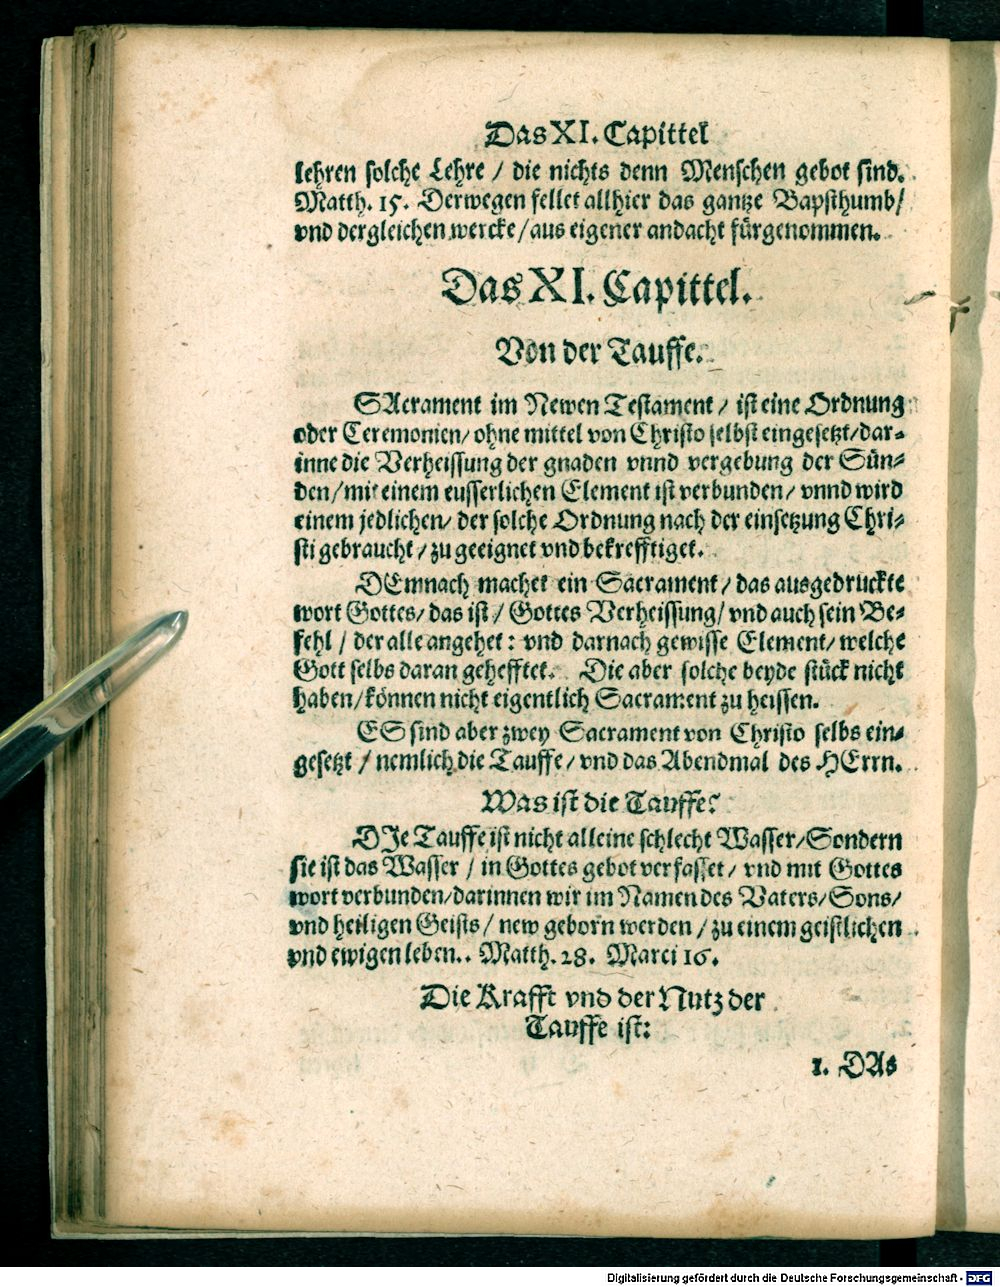 Das XI. Capittel
lehren solche Lehre / die nichts denn Menschen gebot sind.
Matth. 15. Derwegen fellet allhier das gantze Bapsthumb/
vnd dergleichen wercke / aus eigener andacht fürgenommen.
Das XI. Capittel.
Von der Tauffe.
SAcrament im Newen Testament / ist eine Ordnung
oder Ceremonien / ohne mittel von Christo selbst eingesetzt / dar-
inne die Verheissung der gnaden vnnd vergebung der Sün-
den / mit einem eusserlichen Element ist verbunden / vnnd wird
einem jedlichen / der solche Ordnung nach der einsetzung Chri-
sti gebraucht / zu geeignet vnd bekrefftiget.
DEmnach machet ein Sacrament / das ausgedruckte
wort Gottes / das ist / Gottes Verheissung / vnd auch sein Be-
fehl / der alle angehet: vnd darnach gewisse Element / welche
Gott selbs daran gehefftet. Die aber solche beyde stück nicht
haben / können nicht eigentlich Sacrament zu heissen.
ES sind aber zwey Sacrament von Christo selbs ein-
gesetzt / nemlich die Tauffe / vnd das Abendmal des HErrn.
Was ist die Tauffe?
DJe Tauffe ist nicht alleine schlecht Wasser / Sondern
sie ist das Wasser / in Gottes gebot verfasset / vnd mit Gottes
wort verbunden / darinnen wir im Namen des Vaters / Sons /
vnd heiligen Geists / new geborn werden / zu einem geistlichen
vnd ewigen leben.. Matth. 28. Marci 16.
Die Krafft vnd der Nutz der
Tauffe ist:
1. DAs
Digitalisierung gefördert durch die Deutsche Forschungsgemeinschaft - DFG